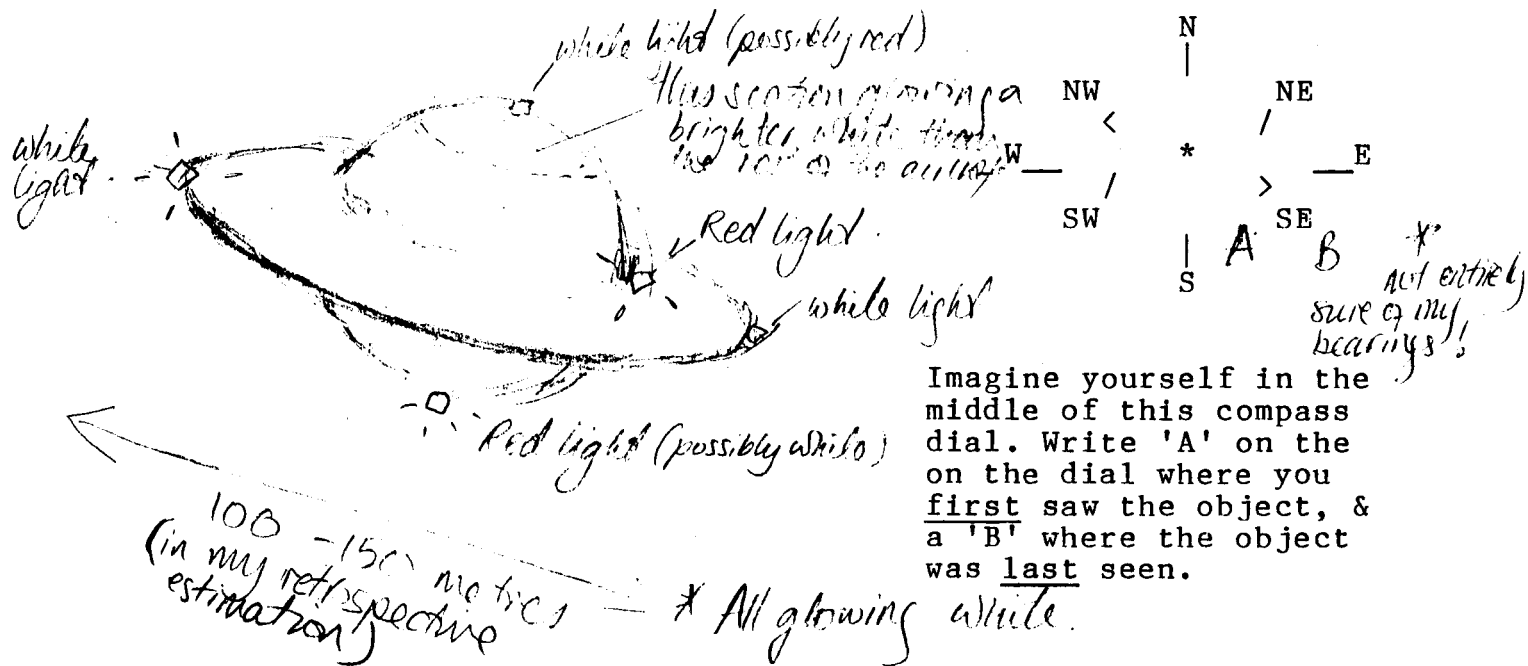 white light (possibly red)
this section glowing a
brighter white than
the rest of the
white
light
Red light.
white light
Red light (possibly white)
100 - 150 metres
(in my retrospective
estimation)
* All glowing white.
N
NW NE
W * E
SW SE
A B
S
* not entirely
sure of my
bearings!
Imagine yourself in the
middle of this compass
dial. Write 'A' on the
on the dial where you
first saw the object, &
a 'B' where the object
was last seen.